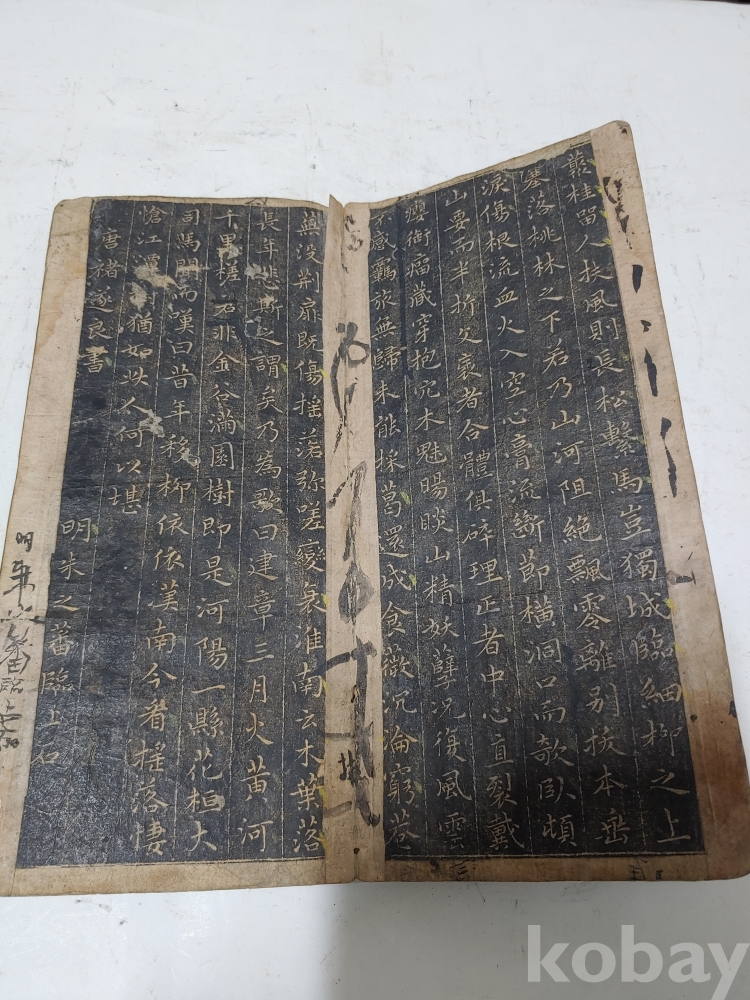 叢桂留人扶風則長松繫馬豈獨城臨細柳之上
塞落桃林之下若乃山河阻絶飄零離別拔本垂
淚傷根流血火入空心膏流斷節橫洞口而欹臥頓
山要而半折文袤者合體俱碎理正者中心直裂戴
癭銜瘤藏穿抱穴木魅睗睒山精妖孽況復風雲
不感羈旅無歸未能採葛還成食薇沉淪窮巷
蕪没荊扉既傷搖落弥嗟變衰淮南云木葉落
長年悲斯之謂矣乃為歌曰建章三月火黄河
千里槎若非金谷滿園樹即是河陽一縣花桓大
司馬聞而嘆曰昔年移柳依依漢南今看搖落悽
愴江潭 猶如此人何以堪
唐褚遂良書
明朱之蕃臨上石
明朱之蕃臨上石
kobay